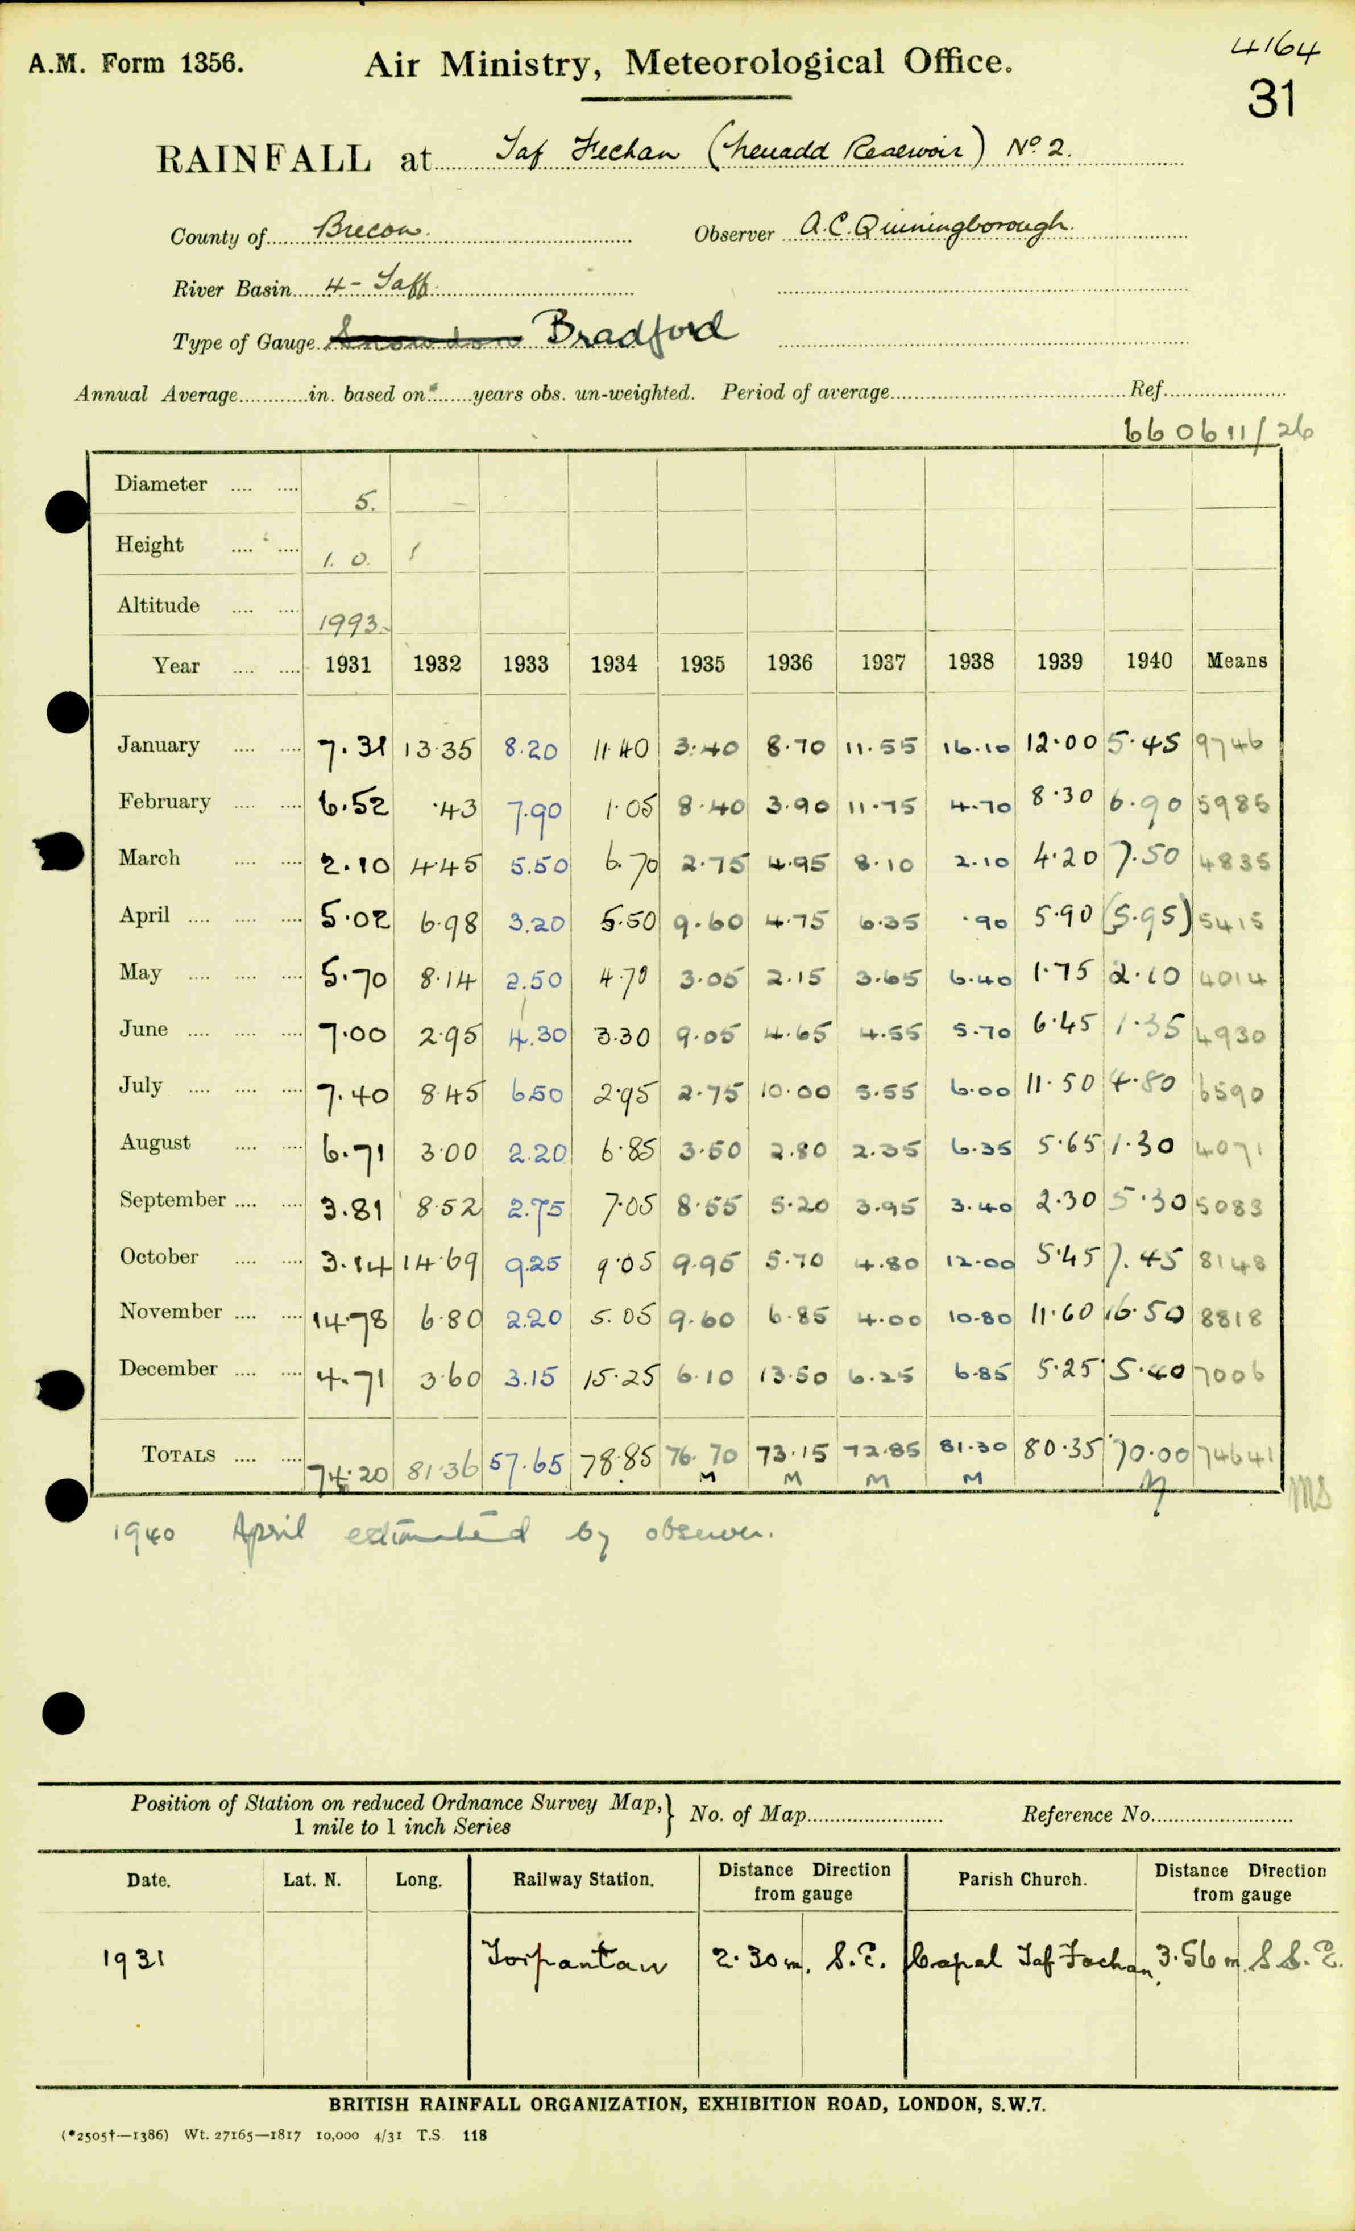 4164
A.M. Form 1356. Air Ministry, Meteorological Office.
31
RAINFALL at Taf Fechan (Neuadd Reservoir) No 2.
County of Brecon. Observer A.C. Quinningborough.
River Basin 4 - Taff.
Type of Gauge Snowdon Bradford
Annual Average............in. based on*......years obs. un-weighted. Period of average.......... Ref..........
660611/26
Diameter .... .... 5. -
Height .... .... 1. 0. 1
Altitude .... .... 1993.
Year .... .... 1931 1932 1933 1934 1935 1936 1937 1938 1939 1940 Means
January .... .... 7.31 13.35 8.20 11.40 3.40 8.70 11.55 16.10 12.00 5.45 9746
February .... .... 6.52 .43 7.90 1.05 8.40 3.90 11.75 4.70 8.30 6.90 5985
March .... .... 2.10 4.45 5.50 6.70 2.75 4.95 8.10 2.10 4.20 7.50 4835
April .... .... .... 5.02 6.98 3.20 5.50 9.60 4.75 6.35 .90 5.90 (5.95) 5415
May .... .... .... 5.70 8.14 2.50 4.70 3.05 2.15 3.65 6.40 1.75 2.10 4014
June .... .... .... 7.00 2.95 4.30 3.30 9.05 4.65 4.55 5.70 6.45 1.35 4930
July .... .... .... 7.40 8.45 6.50 2.95 2.75 10.00 5.55 6.00 11.50 4.80 6590
August .... .... 6.71 3.00 2.20 6.85 3.50 2.80 2.35 6.35 5.65 1.30 4071
September .... .... 3.81 8.52 2.75 7.05 8.55 5.20 3.95 3.40 2.30 5.30 5083
October .... .... 3.14 14.69 9.25 9.05 9.95 5.70 4.80 12.00 5.45 7.45 8148
November .... .... 14.78 6.80 2.20 5.05 9.60 6.85 4.00 10.80 11.60 16.50 8818
December .... .... 4.71 3.60 3.15 15.25 6.10 13.50 6.25 6.85 5.25 5.40 7006
TOTALS .... .... 74.20 81.36 57.65 78.85 76.70 73.15 72.85 81.30 80.35 70.00 74641
M M M M M MS
1940 April estimated by observer.
Position of Station on reduced Ordnance Survey Map,} No. of Map.......... Reference No..........
1 mile to 1 inch Series
Date. Lat. N. Long. Railway Station. Distance Direction from gauge Parish Church. Distance Direction from gauge
1931 Torpantau 2.30 m. S.E. Capal Taf Fechan 3.56 m. S.S.E.
BRITISH RAINFALL ORGANIZATION, EXHIBITION ROAD, LONDON, S.W.7.
(*2505†—1386) Wt. 27165—1817 10,000 4/31 T.S. 118